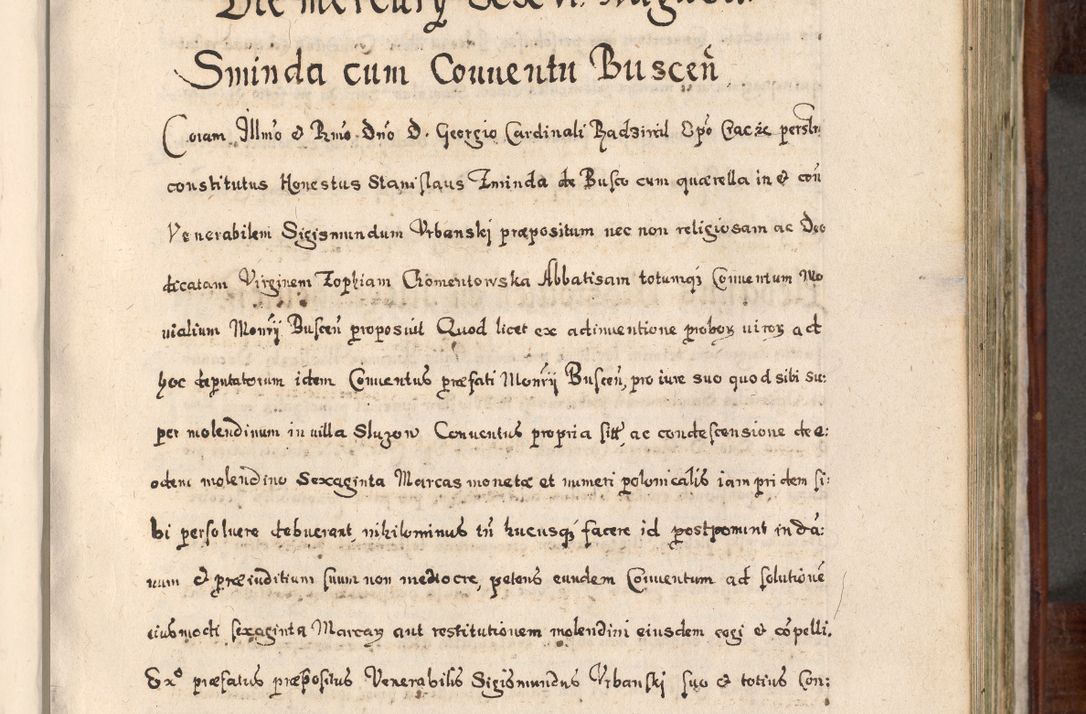 Die Mercurÿ
Sminda cum Conuentu Buscen̄
Coram Illmo et Rmo Dno D. Georgio Cardinali Radziwil Epō Crac̃ꝫc perslr
constitutus Honestus Stanislaus Zminda de Busco cum quærella in et con̄
Venerabilem Sigismundum Vrbanski præpositum nec non religiosam ac Deo
dicatam Virginem Zophiam Chomentowska Abbatisam totumqȝ Conuentum Mo
nialium Monrij Buscen̄ proposuit Quod licet ex adinuentione proboꝝ uiroꝝ ad
hoc deputatorum idem Conuentus præfati Monrij Buscen̄, pro iure suo quod sibi su:
per molendinum in uilla Sluzow Conuentus propria sitt, ac condescensione de e:
odem molendino Sexaginta Marcas monetæ et numeri polonicalis iam pridem si:
bi persoluere debuerant, nihilominus tn̄ hucusqȝ facere id postponunt in dā:
num et præiuditium suum non mediocre, petens eundem Conuentum ad solutionē
eiusmodi sexaginta Marcaꝝ aut restitutionem molendini eiusdem cogi et cōpelli.
Exº præfatus præpositus Venerabilis Sigismundus Vrbanski suo et totius Con: